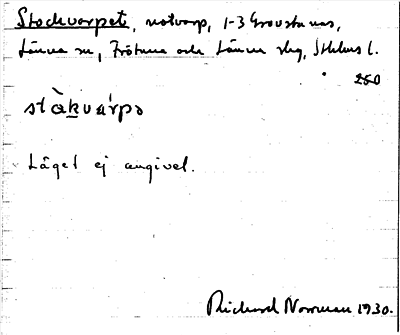 Stockvarpet, notvarp, 1-3 Grovstanäs,
Länna sn, Frötuna och Länna slg, Sthlms l.
250
stàkvárpə
Läget ej angivet.
Richard Norrman 1930.